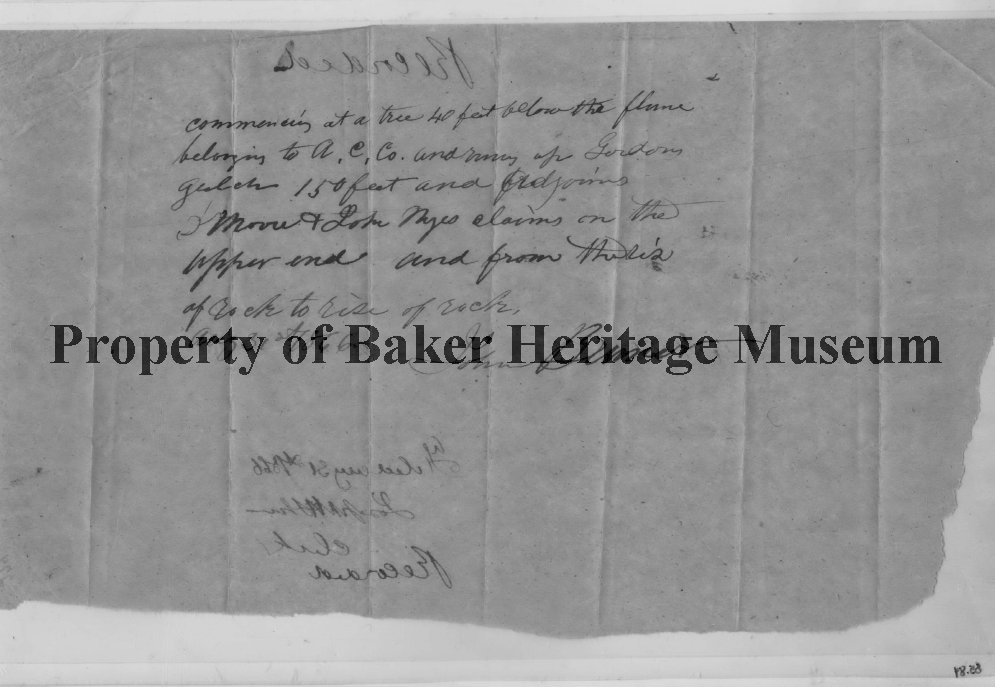 Recorded
commencing at a tree 40 feet below the flume
belonging to A. C. Co. and runs up Gordons
gulch 150 feet and Adjoins
Moore & John Nyes claims on the
upper end and from the ris
of rock to rise of rock.
Property of Baker Heritage Museum
John
Filed Aug 31st 1866
Clerk
Recorded